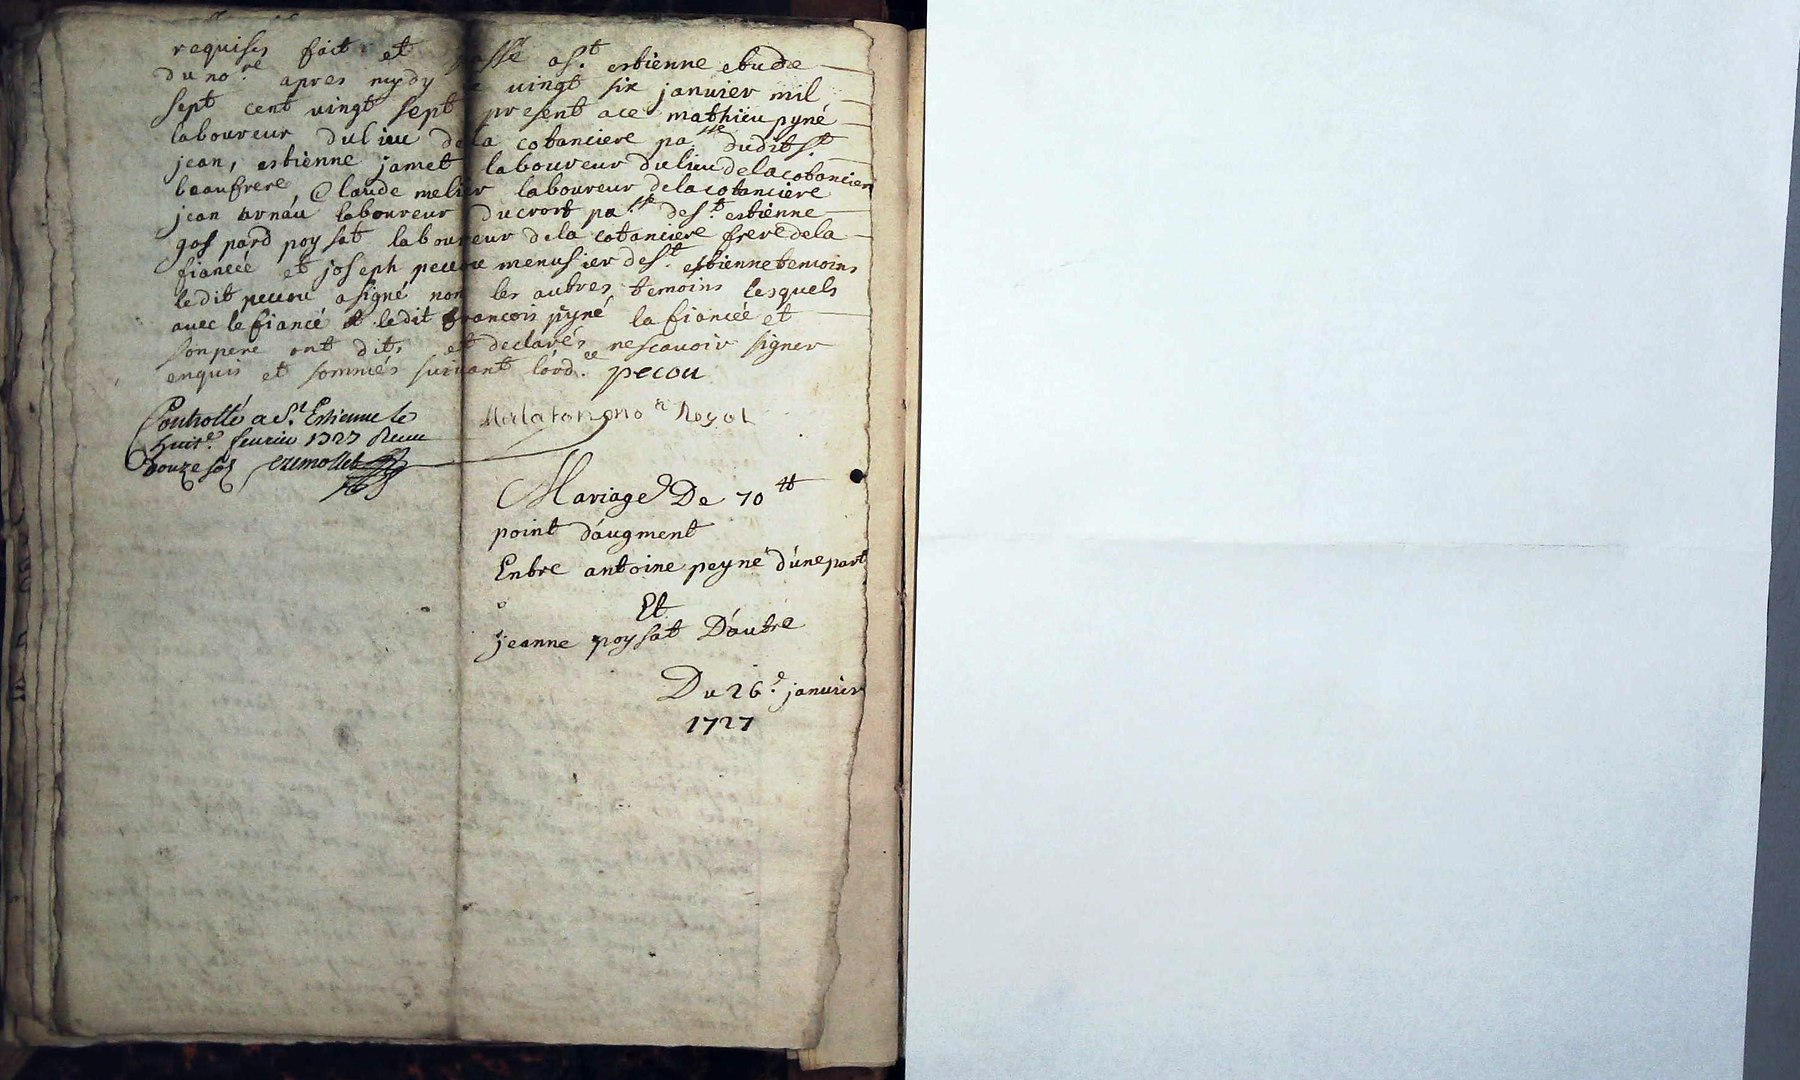 requises fait et passé a st. estienne etude
du nore. apres mydy le vingt six janvier mil
sept cent vingt sept present ace mathieu pyné
laboureur du lieu de la cotanciere passe. dudit st.
jean, estienne jamet laboureur du lieu de la cotanciere
beaufrere, Claude melier laboureur de la cotanciere
jean arnau laboureur du crort passe. de st. estienne
gaspard poysat laboureur de la cotanciere frere de la
fiancéé et joseph pecou menusier de st. estienne temoins
ledit pecou a signé non les autres temoins lesquels
avec le fiancé et ledit francois pyné la fiancéé et
son pere ont dits et declarés ne scavoir signer
enquis et sommés suivant l'ordce. pecou
Controllé a St. Estienne le
huite. fevrier 1727 Receu
douze sols
nore Royal
Mariage De 70 tt
point d'augment
Entre antoine peyne d'une part
Et
jeanne poysat D'autre
Du 26e. janvier
1727